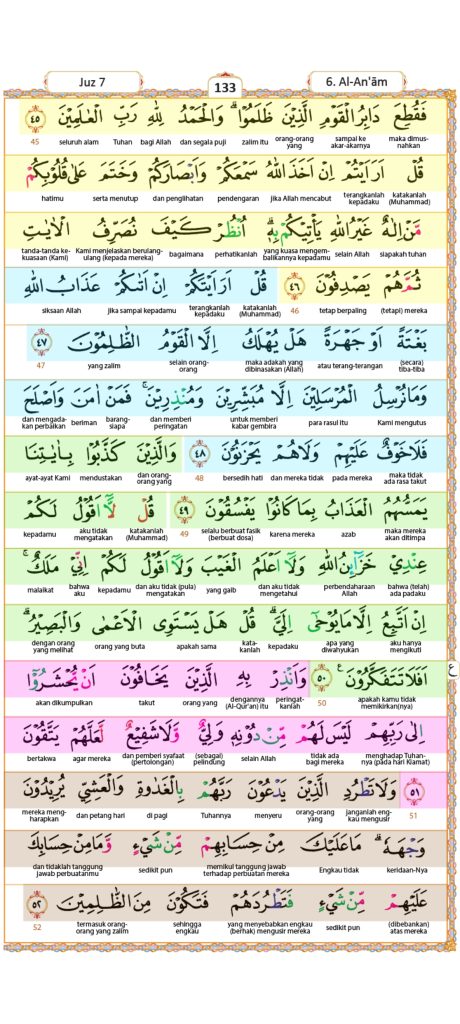 Juz 7
133
6. Al-An'ām
فَقُطِعَ دَابِرُ الْقَوْمِ الَّذِيْنَ ظَلَمُوْاۗ وَالْحَمْدُ لِلّٰهِ رَبِّ الْعٰلَمِيْنَ ٤٥
maka dimusnahkan sampai ke akar-akarnya orang-orang yang zalim itu dan segala puji bagi Allah Tuhan seluruh alam 45
قُلْ اَرَاَيْتُمْ اِنْ اَخَذَ اللّٰهُ سَمْعَكُمْ وَاَبْصَارَكُمْ وَخَتَمَ عَلٰى قُلُوْبِكُمْ
katakanlah (Muhammad) terangkanlah kepadaku jika Allah mencabut pendengaran dan penglihatan serta menutup hatimu
مَّنْ اِلٰهٌ غَيْرُ اللّٰهِ يَأْتِيْكُمْ بِهٖۗ اُنْظُرْ كَيْفَ نُصَرِّفُ الْاٰيٰتِ
siapakah tuhan selain Allah yang kuasa mengembalikannya kepadamu perhatikanlah bagaimana Kami menjelaskan berulang-ulang (kepada mereka) tanda-tanda kekuasaan (Kami)
ثُمَّ هُمْ يَصْدِفُوْنَ ٤٦ قُلْ اَرَاَيْتَكُمْ اِنْ اَتٰىكُمْ عَذَابُ اللّٰهِ
(tetapi) mereka tetap berpaling 46 katakanlah (Muhammad) terangkanlah kepadaku jika sampai kepadamu siksaan Allah
بَغْتَةً اَوْ جَهْرَةً هَلْ يُهْلَكُ اِلَّا الْقَوْمُ الظّٰلِمُوْنَ ٤٧
(secara) tiba-tiba atau terang-terangan maka adakah yang dibinasakan (Allah) selain orang-orang yang zalim 47
وَمَا نُرْسِلُ الْمُرْسَلِيْنَ اِلَّا مُبَشِّرِيْنَ وَمُنْذِرِيْنَۚ فَمَنْ اٰمَنَ وَاَصْلَحَ
Kami mengutus para rasul itu untuk memberi kabar gembira dan memberi peringatan barang-siapa beriman dan mengadakan perbaikan
فَلَا خَوْفٌ عَلَيْهِمْ وَلَا هُمْ يَحْزَنُوْنَ ٤٨ وَالَّذِيْنَ كَذَّبُوْا بِاٰيٰتِنَا
maka tidak ada rasa takut pada mereka dan mereka tidak bersedih hati 48 dan orang-orang yang mendustakan ayat-ayat Kami
يَمَسُّهُمُ الْعَذَابُ بِمَا كَانُوْا يَفْسُقُوْنَ ٤٩ قُلْ لَّآ اَقُوْلُ لَكُمْ
maka mereka akan ditimpa azab karena mereka selalu berbuat fasik (berbuat dosa) 49 katakanlah (Muhammad) aku tidak mengatakan kepadamu
عِنْدِيْ خَزَاۤىِٕنُ اللّٰهِ وَلَآ اَعْلَمُ الْغَيْبَ وَلَآ اَقُوْلُ لَكُمْ اِنِّيْ مَلَكٌۚ
bahwa (telah) ada padaku perbendaharaan Allah dan aku tidak mengetahui yang gaib dan aku tidak (pula) mengatakan kepadamu bahwa aku malaikat
اِنْ اَتَّبِعُ اِلَّا مَا يُوْحٰٓى اِلَيَّۗ قُلْ هَلْ يَسْتَوِى الْاَعْمٰى وَالْبَصِيْرُۗ
aku hanya mengikuti apa yang diwahyukan kepadaku katakanlah apakah sama orang yang buta dengan orang yang melihat
اَفَلَا تَتَفَكَّرُوْنَ ٥٠ وَاَنْذِرْ بِهِ الَّذِيْنَ يَخَافُوْنَ اَنْ يُّحْشَرُوْٓا ع
apakah kamu tidak memikirkan(nya) 50 peringatkanlah dengannya (Al-Qur'an) itu orang yang takut akan dikumpulkan
اِلٰى رَبِّهِمْ لَيْسَ لَهُمْ مِّنْ دُوْنِهٖ وَلِيٌّ وَّلَا شَفِيْعٌ لَّعَلَّهُمْ يَتَّقُوْنَ
menghadap Tuhannya (pada hari Kiamat) tidak ada bagi mereka selain Allah (sebagai) pelindung dan pemberi syafaat (pertolongan) agar mereka bertakwa
٥١ وَلَا تَطْرُدِ الَّذِيْنَ يَدْعُوْنَ رَبَّهُمْ بِالْغَدٰوةِ وَالْعَشِيِّ يُرِيْدُوْنَ
51 janganlah engkau mengusir orang-orang yang menyeru Tuhannya di pagi dan petang hari mereka mengharapkan
وَجْهَهٗۗ مَا عَلَيْكَ مِنْ حِسَابِهِمْ مِّنْ شَيْءٍ وَّمَا مِنْ حِسَابِكَ
keridaan-Nya Engkau tidak memikul tanggung jawab terhadap perbuatan mereka sedikit pun dan tidaklah tanggung jawab perbuatanmu
عَلَيْهِمْ مِّنْ شَيْءٍ فَتَطْرُدَهُمْ فَتَكُوْنَ مِنَ الظّٰلِمِيْنَ ٥٢
(dibebankan) atas mereka sedikit pun yang menyebabkan engkau (berhak) mengusir mereka sehingga engkau termasuk orang-orang yang zalim 52